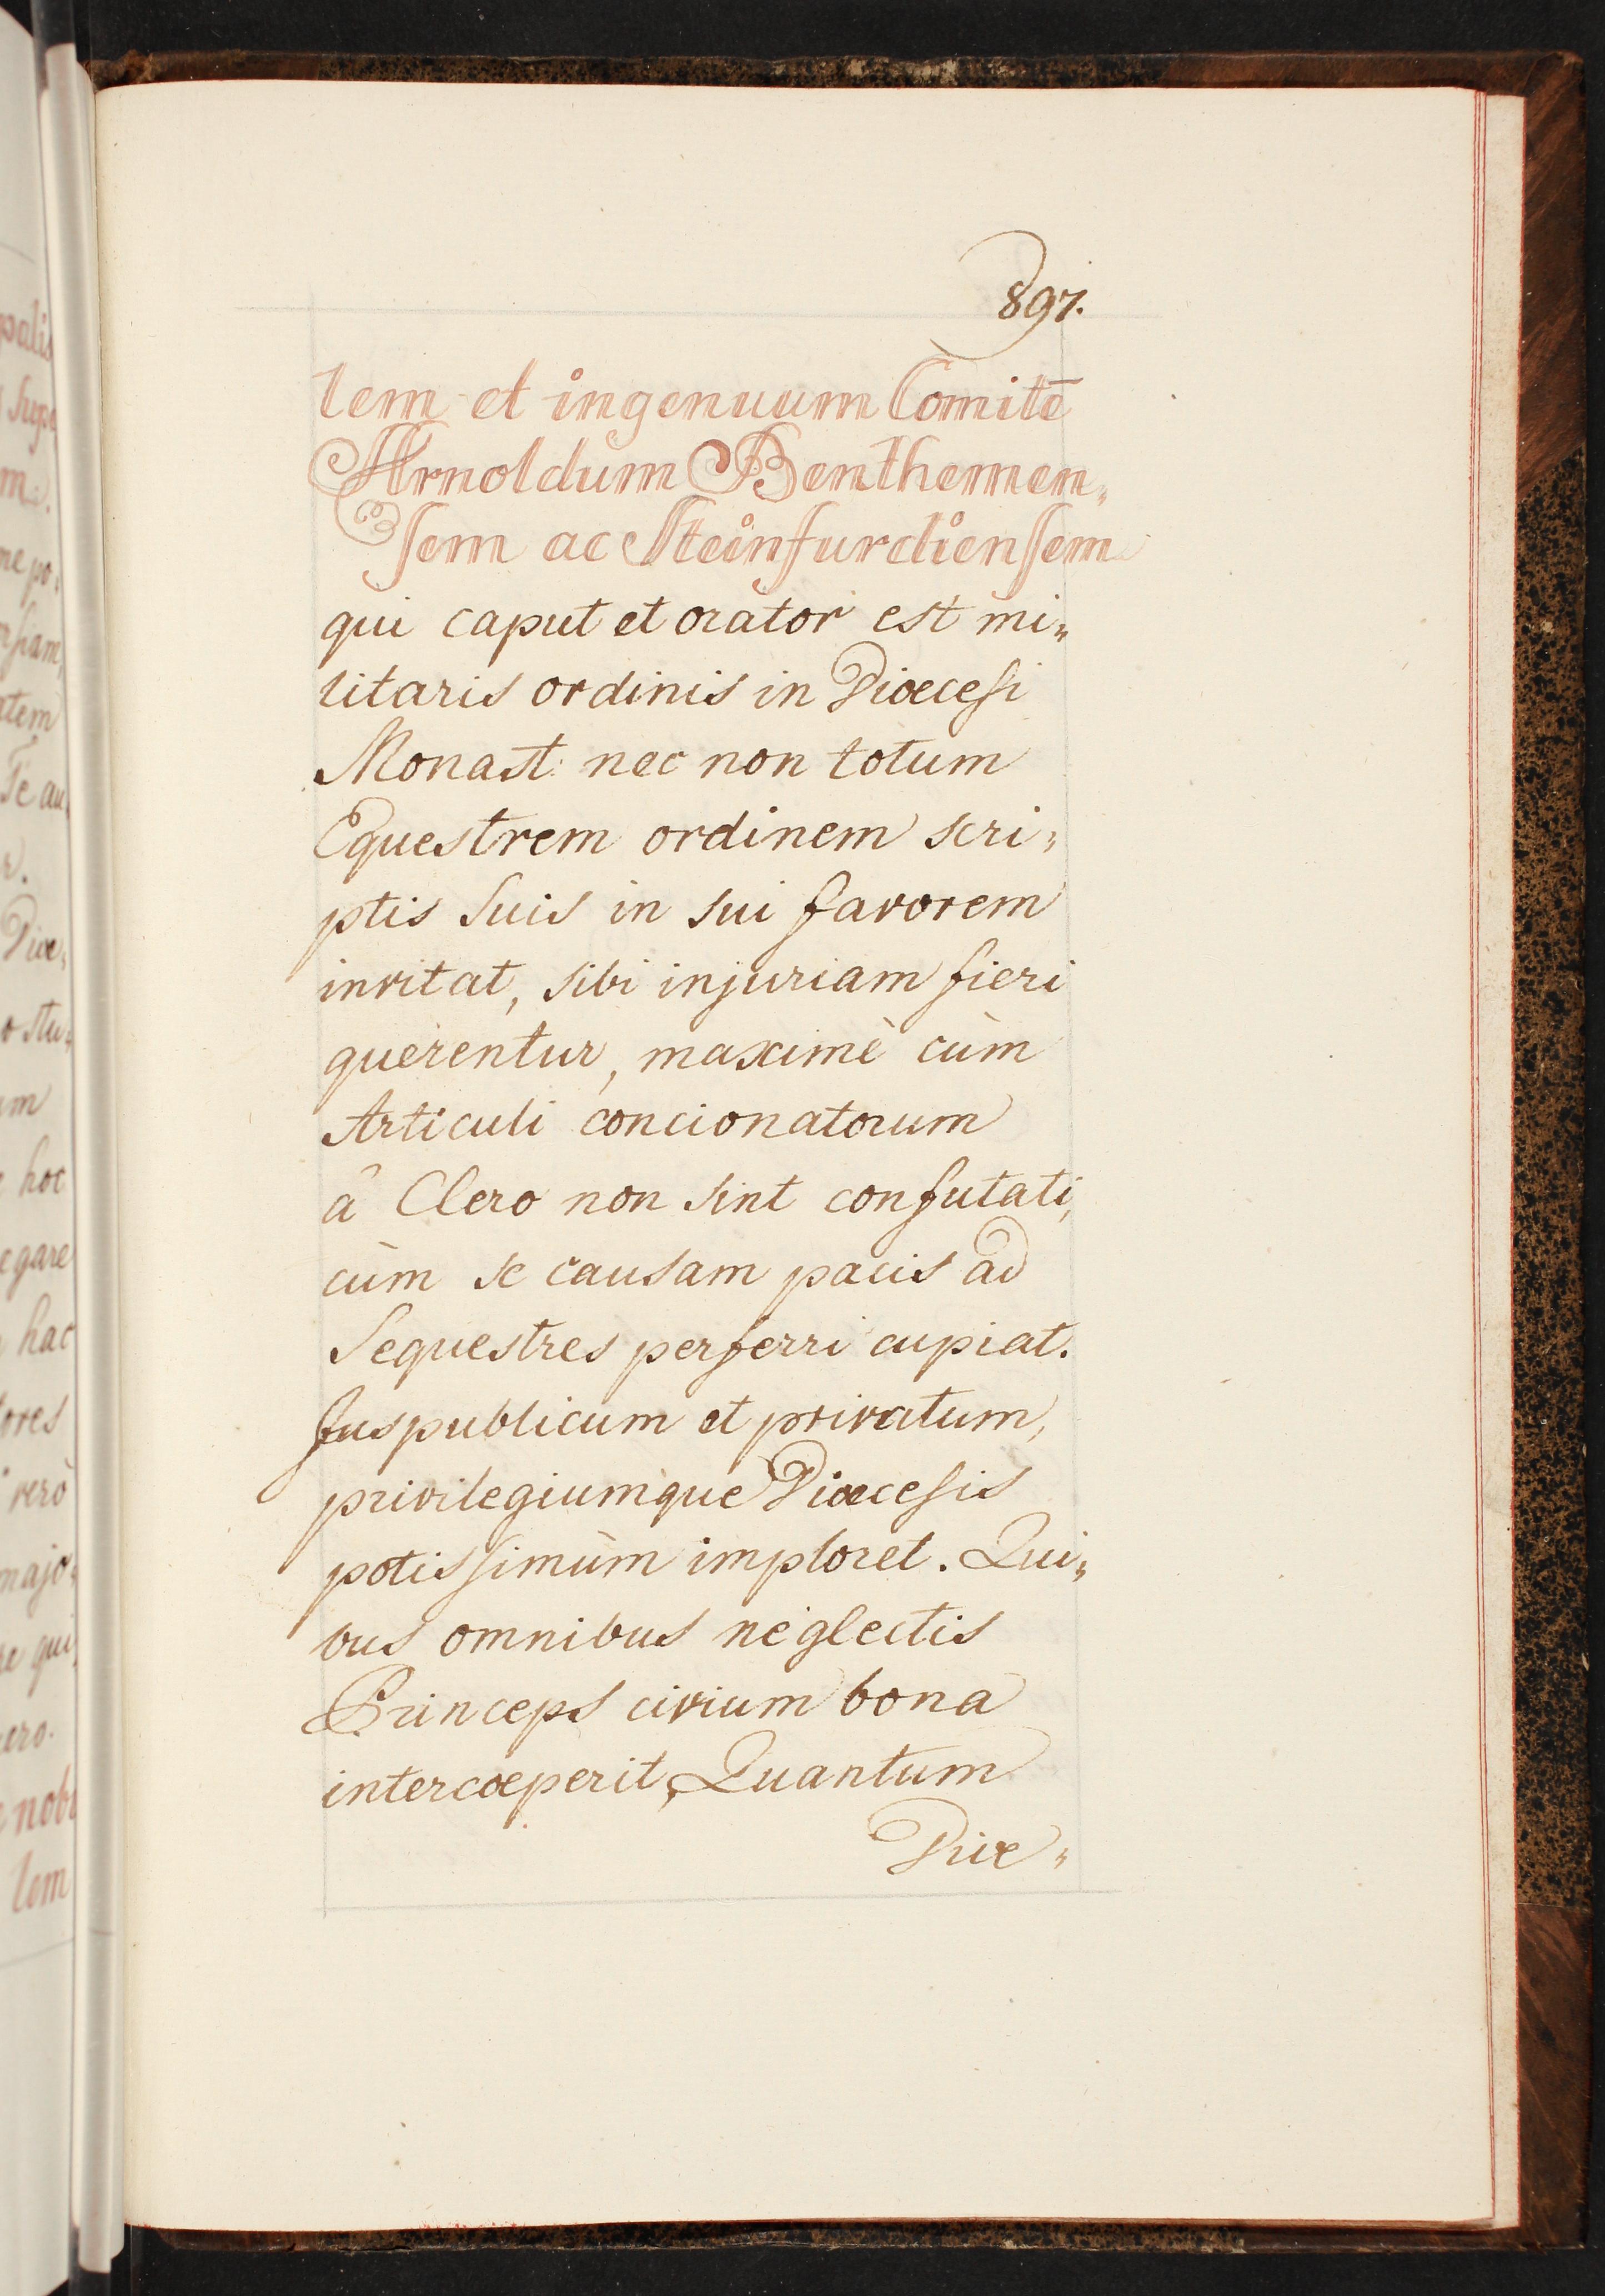 897.
lem et ingenuum Comitē
Arnoldum Benthemen„
sem ac Steinfurdiensem
qui caput et orator est mi„
litaris ordinis in Diœcesi
Monast: nec non totum
Equestrem ordinem scri„
ptis suis in sui favorem
invitat, sibi injuriam fieri
querentur, maximè cùm
Articuli concionatorum
â Clero non sint confutati,
cùm se causam pacis ad
Sequestres perferri cupiat.
Jus publicum et privatum,
privilegiumque Diœcesis
potissimùm imploret. Qui„
bus omnibus neglectis
Princeps civium bona
intercœperit, Quantum
Diœ„